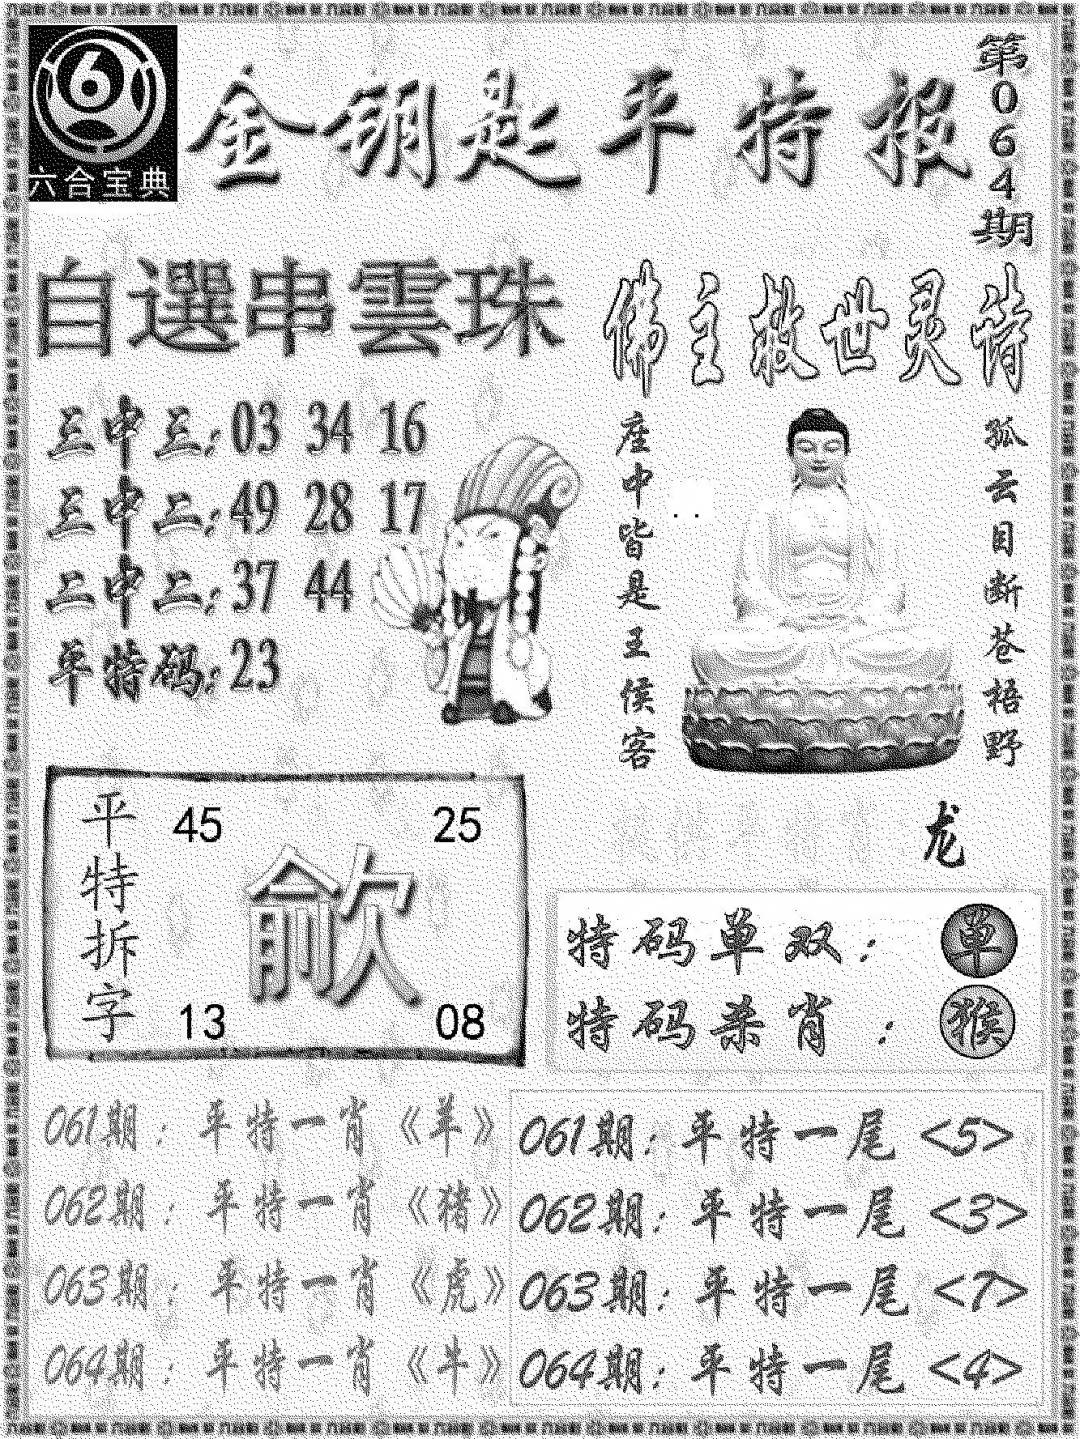 六合宝典
金钥匙平特报
第064期
自選串雲珠
三中三:03 34 16
三中二:49 28 17
二中二:37 44
单特码:23
佛主救世灵诗
孤云目断苍梧野
座中皆是王侯客
龙
平特拆字
45 25
歈
13 08
特码单双: 单
特码杀肖: 猴
061期: 平特一肖《羊》
062期: 平特一肖《猪》
063期: 平特一肖《虎》
064期: 平特一肖《牛》
061期: 平特一尾 <5>
062期: 平特一尾 <3>
063期: 平特一尾 <7>
064期: 平特一尾 <4>